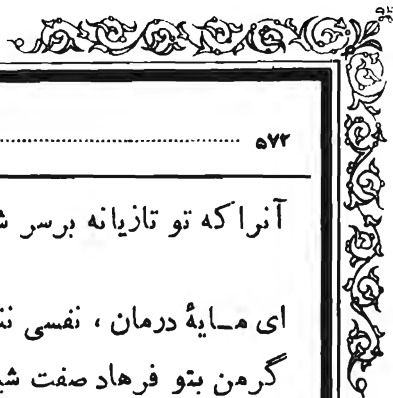 ۵۷۲
آنرا که تو تازیانه برسر
ای مــایهٔ درمان ، نفسی
گرمن بتو فرهاد صفت